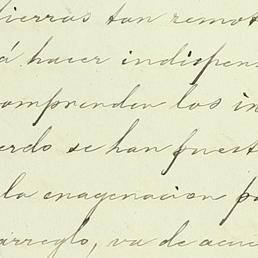 tierras tan remot
á hacer indispens
comprenden los in
erdo se han puest
la enagenacion pa
arreglo, va de acue